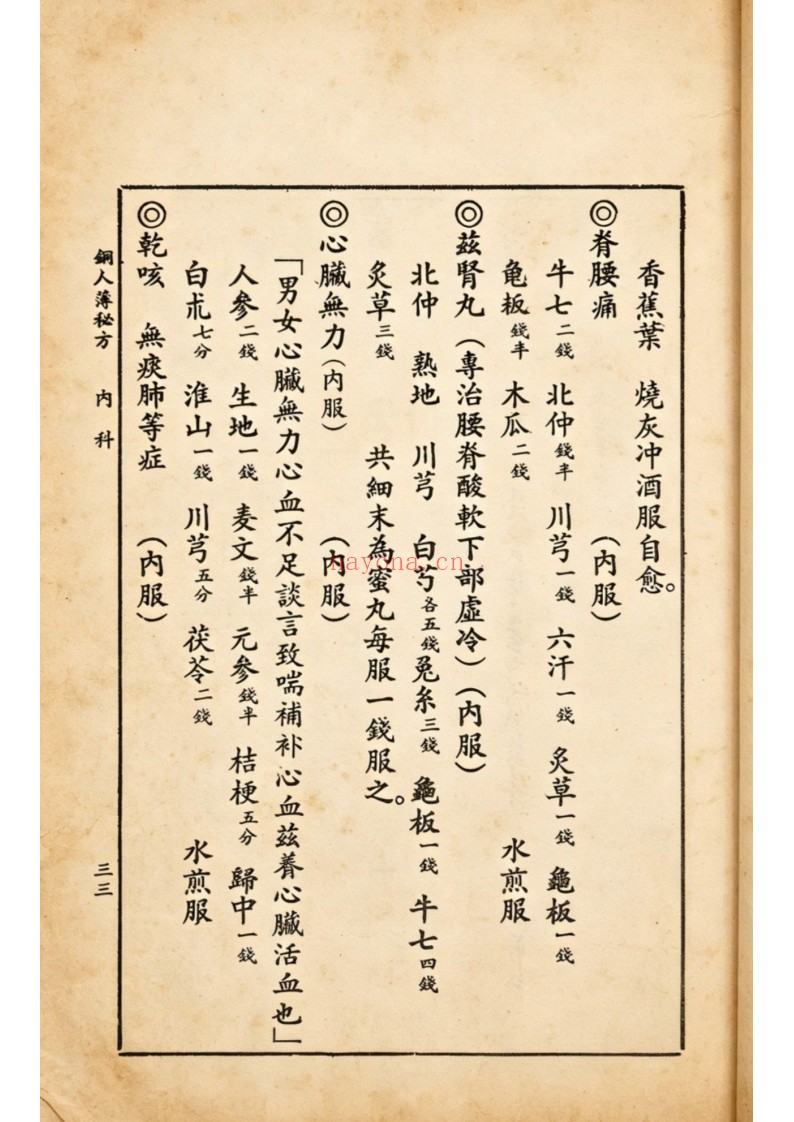 香蕉葉　燒灰冲酒服自愈。
◎脊腰痛　（內服）
牛七二錢　北仲錢半　川芎一錢　六汗一錢　炙草一錢　龜板一錢
龟板錢半　木瓜二錢　水煎服
◎茲腎丸（專治腰脊酸軟下部虛冷）（內服）
北仲　熟地　川芎　白芍各五錢　兔糸三錢　龜板一錢　牛七四錢
炙草三錢　共細末為蜜丸每服一錢服之。
◎心臟無力（內服）　（內服）
「男女心臟無力心血不足談言致喘補补心血茲養心臟活血也」
人參二錢　生地一錢　麦文錢半　元參錢半　桔梗五分　歸中一錢
白朮七分　淮山一錢　川芎五分　茯苓二錢　水煎服
◎乾咳　無痰肺等症　（內服）
銅人薄秘方　內科　三三
nayona.cn